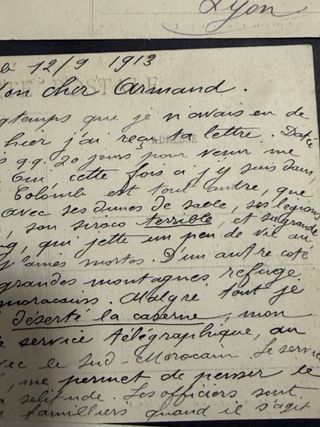 Lyon
12/9 1913
cher Armand.
que je n'avais eu de
hier j'ai reçu ta lettre. Date
20 jours pour venir me
Oui cette fois a j'y suis dans
Colomb est tout autre, que
avec ses dunes de sable, ses legions
son siroco terrible et sa grande
qui jette un peu de vie au
d'ames mortes. D'un autre coté
grandes montagnes refuge
marocains. Malgre tout je
déserté la caserne, mon
service télégraphique, au
le Sud-Marocain. Le service
me permet de penser le
solitude. Les officiers sont
familliers quand il s'agit